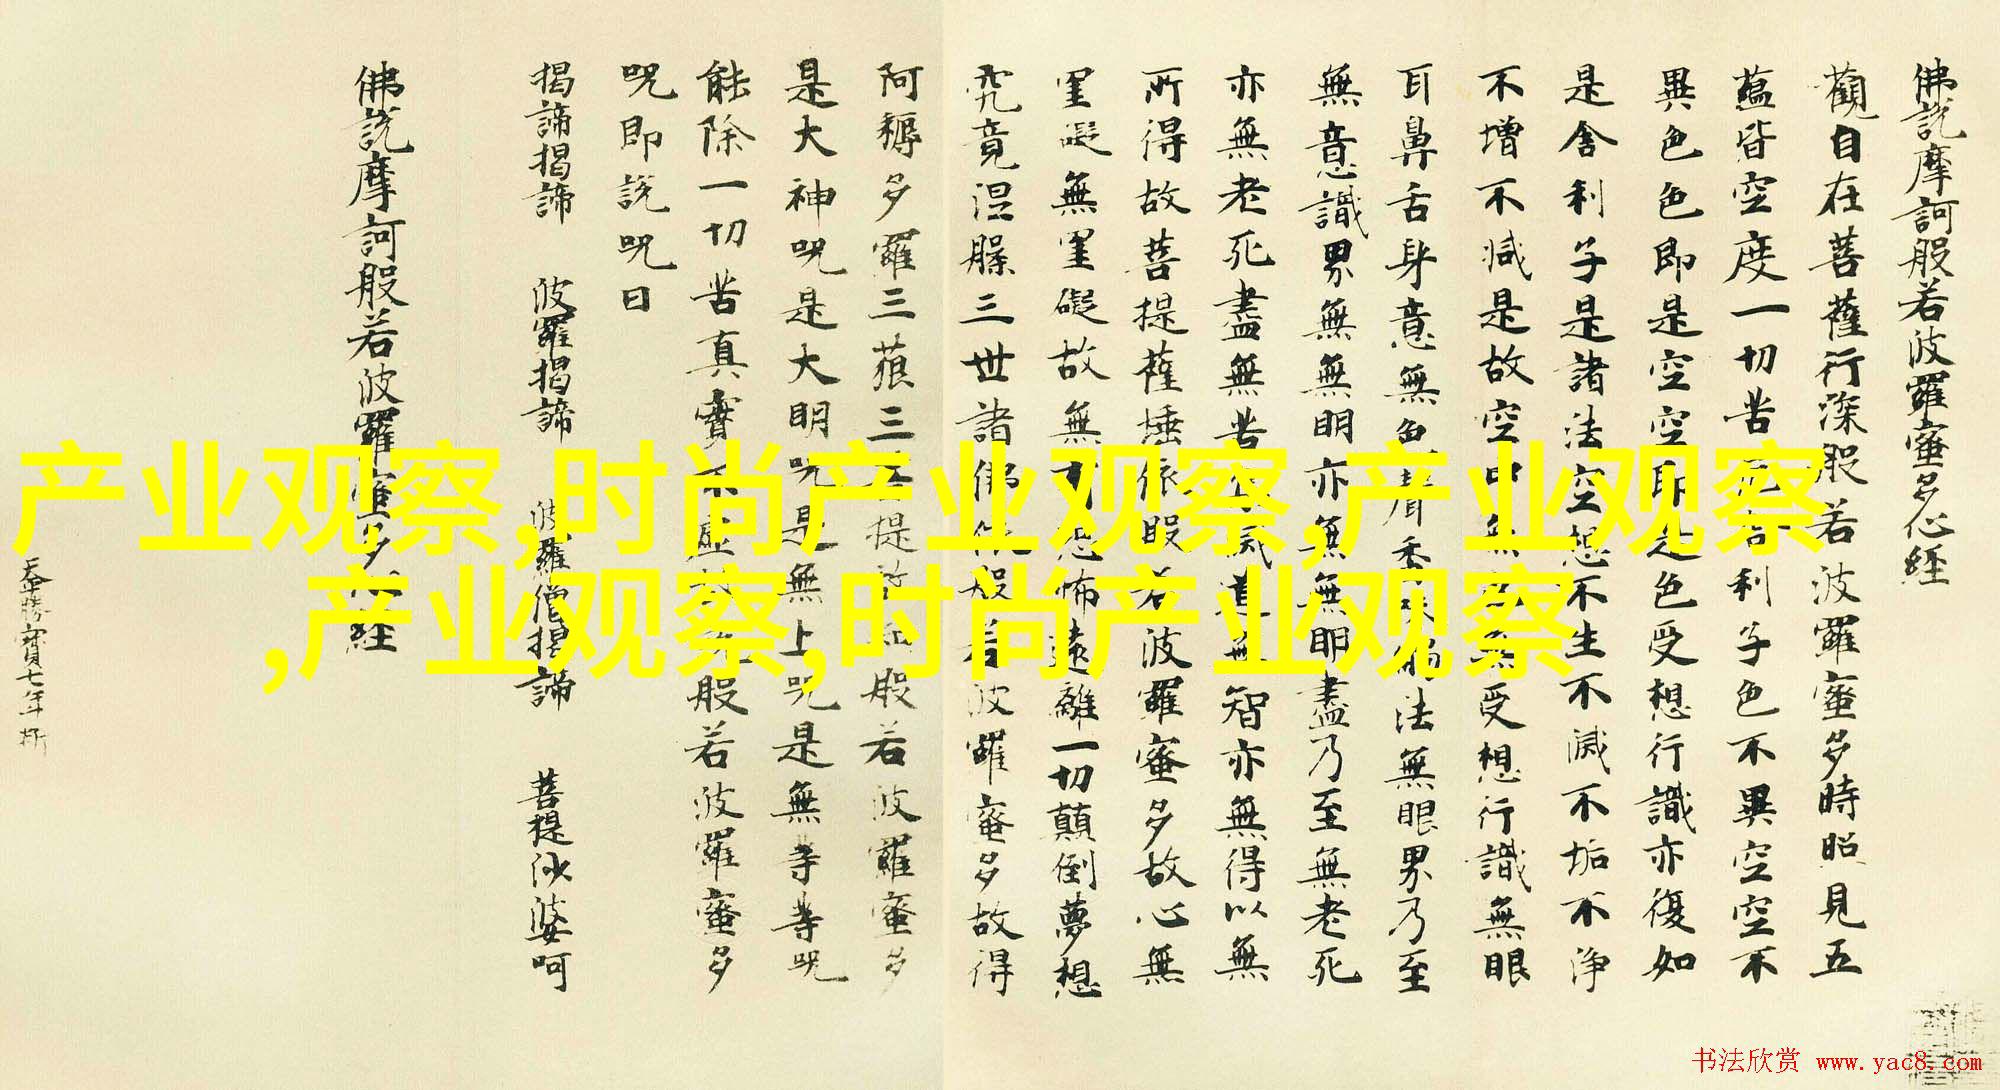 佛説摩訶般若波羅蜜多心經
觀自在菩薩行深般若波羅蜜多時照見五
蘊皆空度一切苦舍利子色不異空空不
異色色即是空空即是色受想行識亦復如
是舍利子是諸法空想不生不滅不垢不淨
不增不減是故空中無受想行識無眼
耳鼻舌身意無色聲香法無眼界乃至
無意識界無無明亦無無明盡乃至無老死
亦無老死盡無苦滅道無智亦無得以無
所得故菩提薩埵依般若波羅蜜多故心無
罣礙無罣礙故無恐怖遠離一切顛倒夢想
究竟涅槃三世諸佛依般若波羅蜜多故得
阿耨多羅三藐三提般若波羅蜜多
是大神咒是大明咒是無上咒是無等等咒
能除一切苦真實不虛般若波羅蜜多
咒即說咒曰
揭諦揭諦 波羅揭諦 波羅僧揭諦 菩提沙婆呵
佛說摩訶般若波羅蜜多經
勝寶七年
产业观察,时尚产业观察,产业观察
,产业观察,时尚产业观察
书法欣赏 www.yac8.com